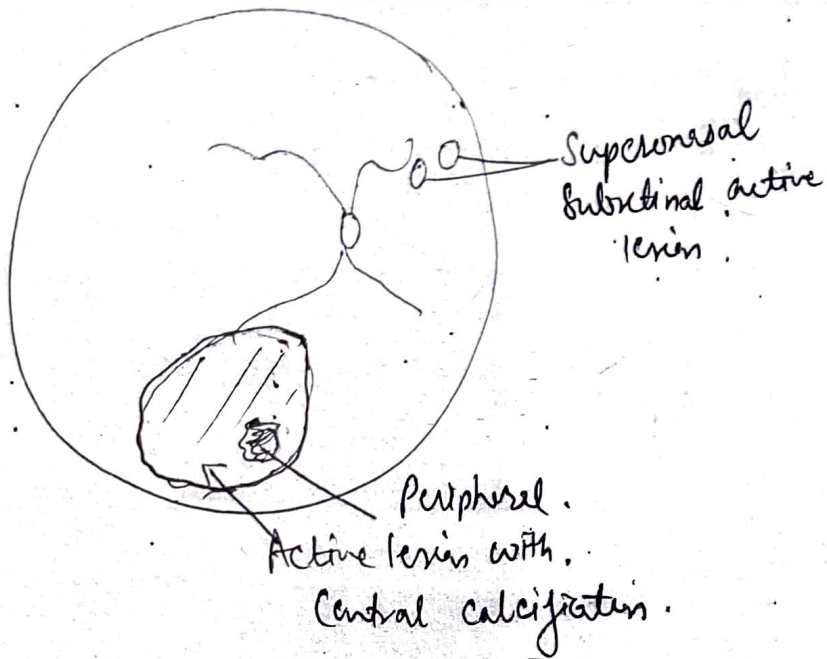 Superonasal
Subretinal active
lesion.
Peripheral.
Active lesion with.
Central calcification.